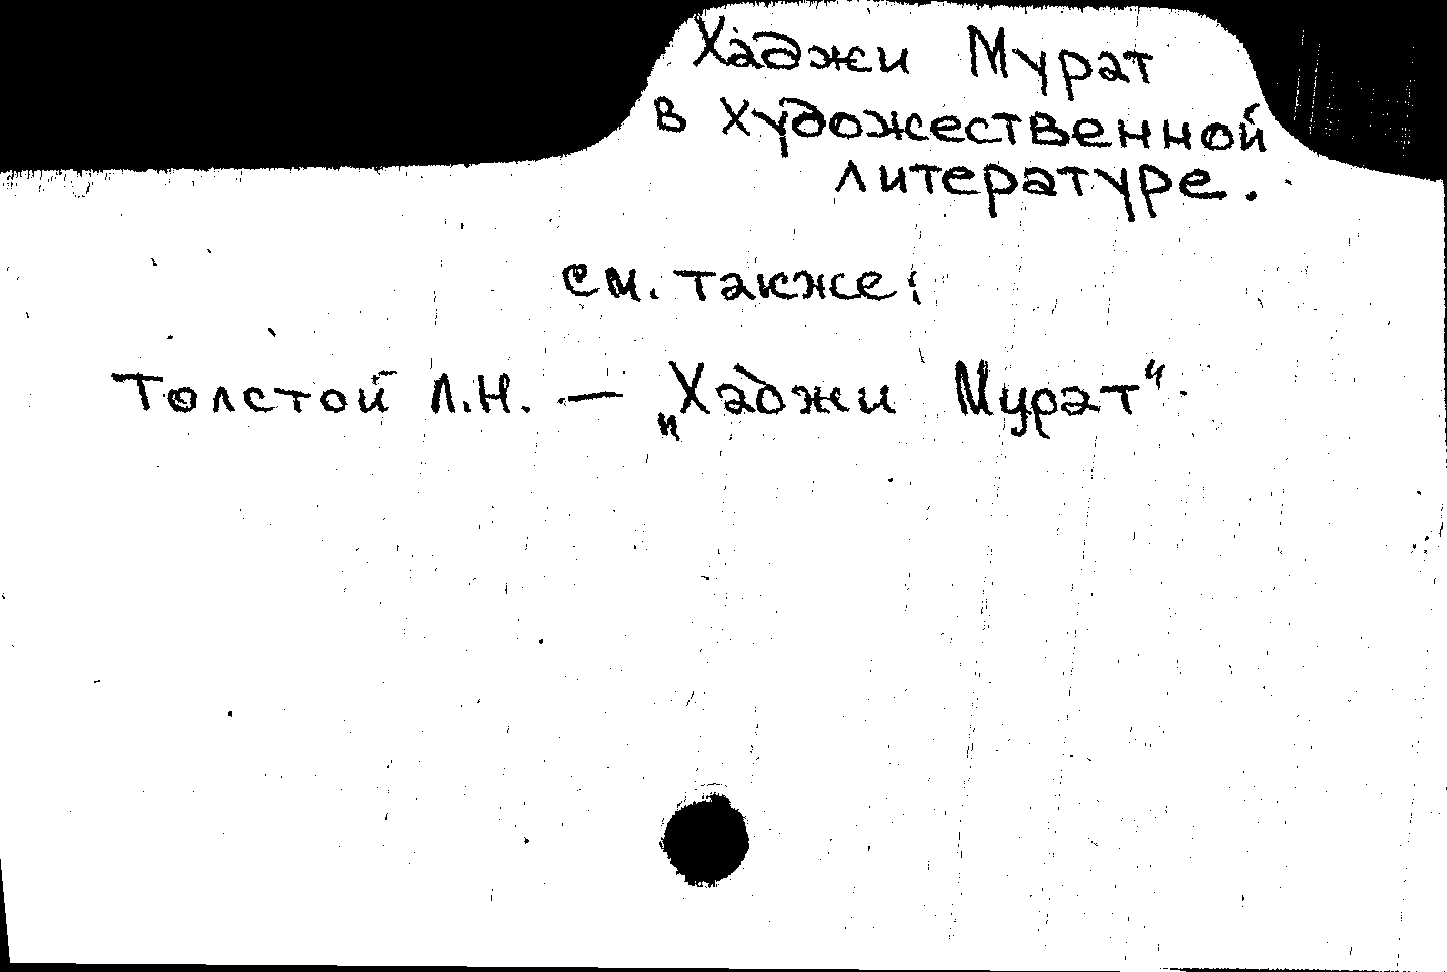 Хаджи Мурат
в художественной
литературе.
см. также:
Толстой Л.Н. — „Хаджи Мурат“.